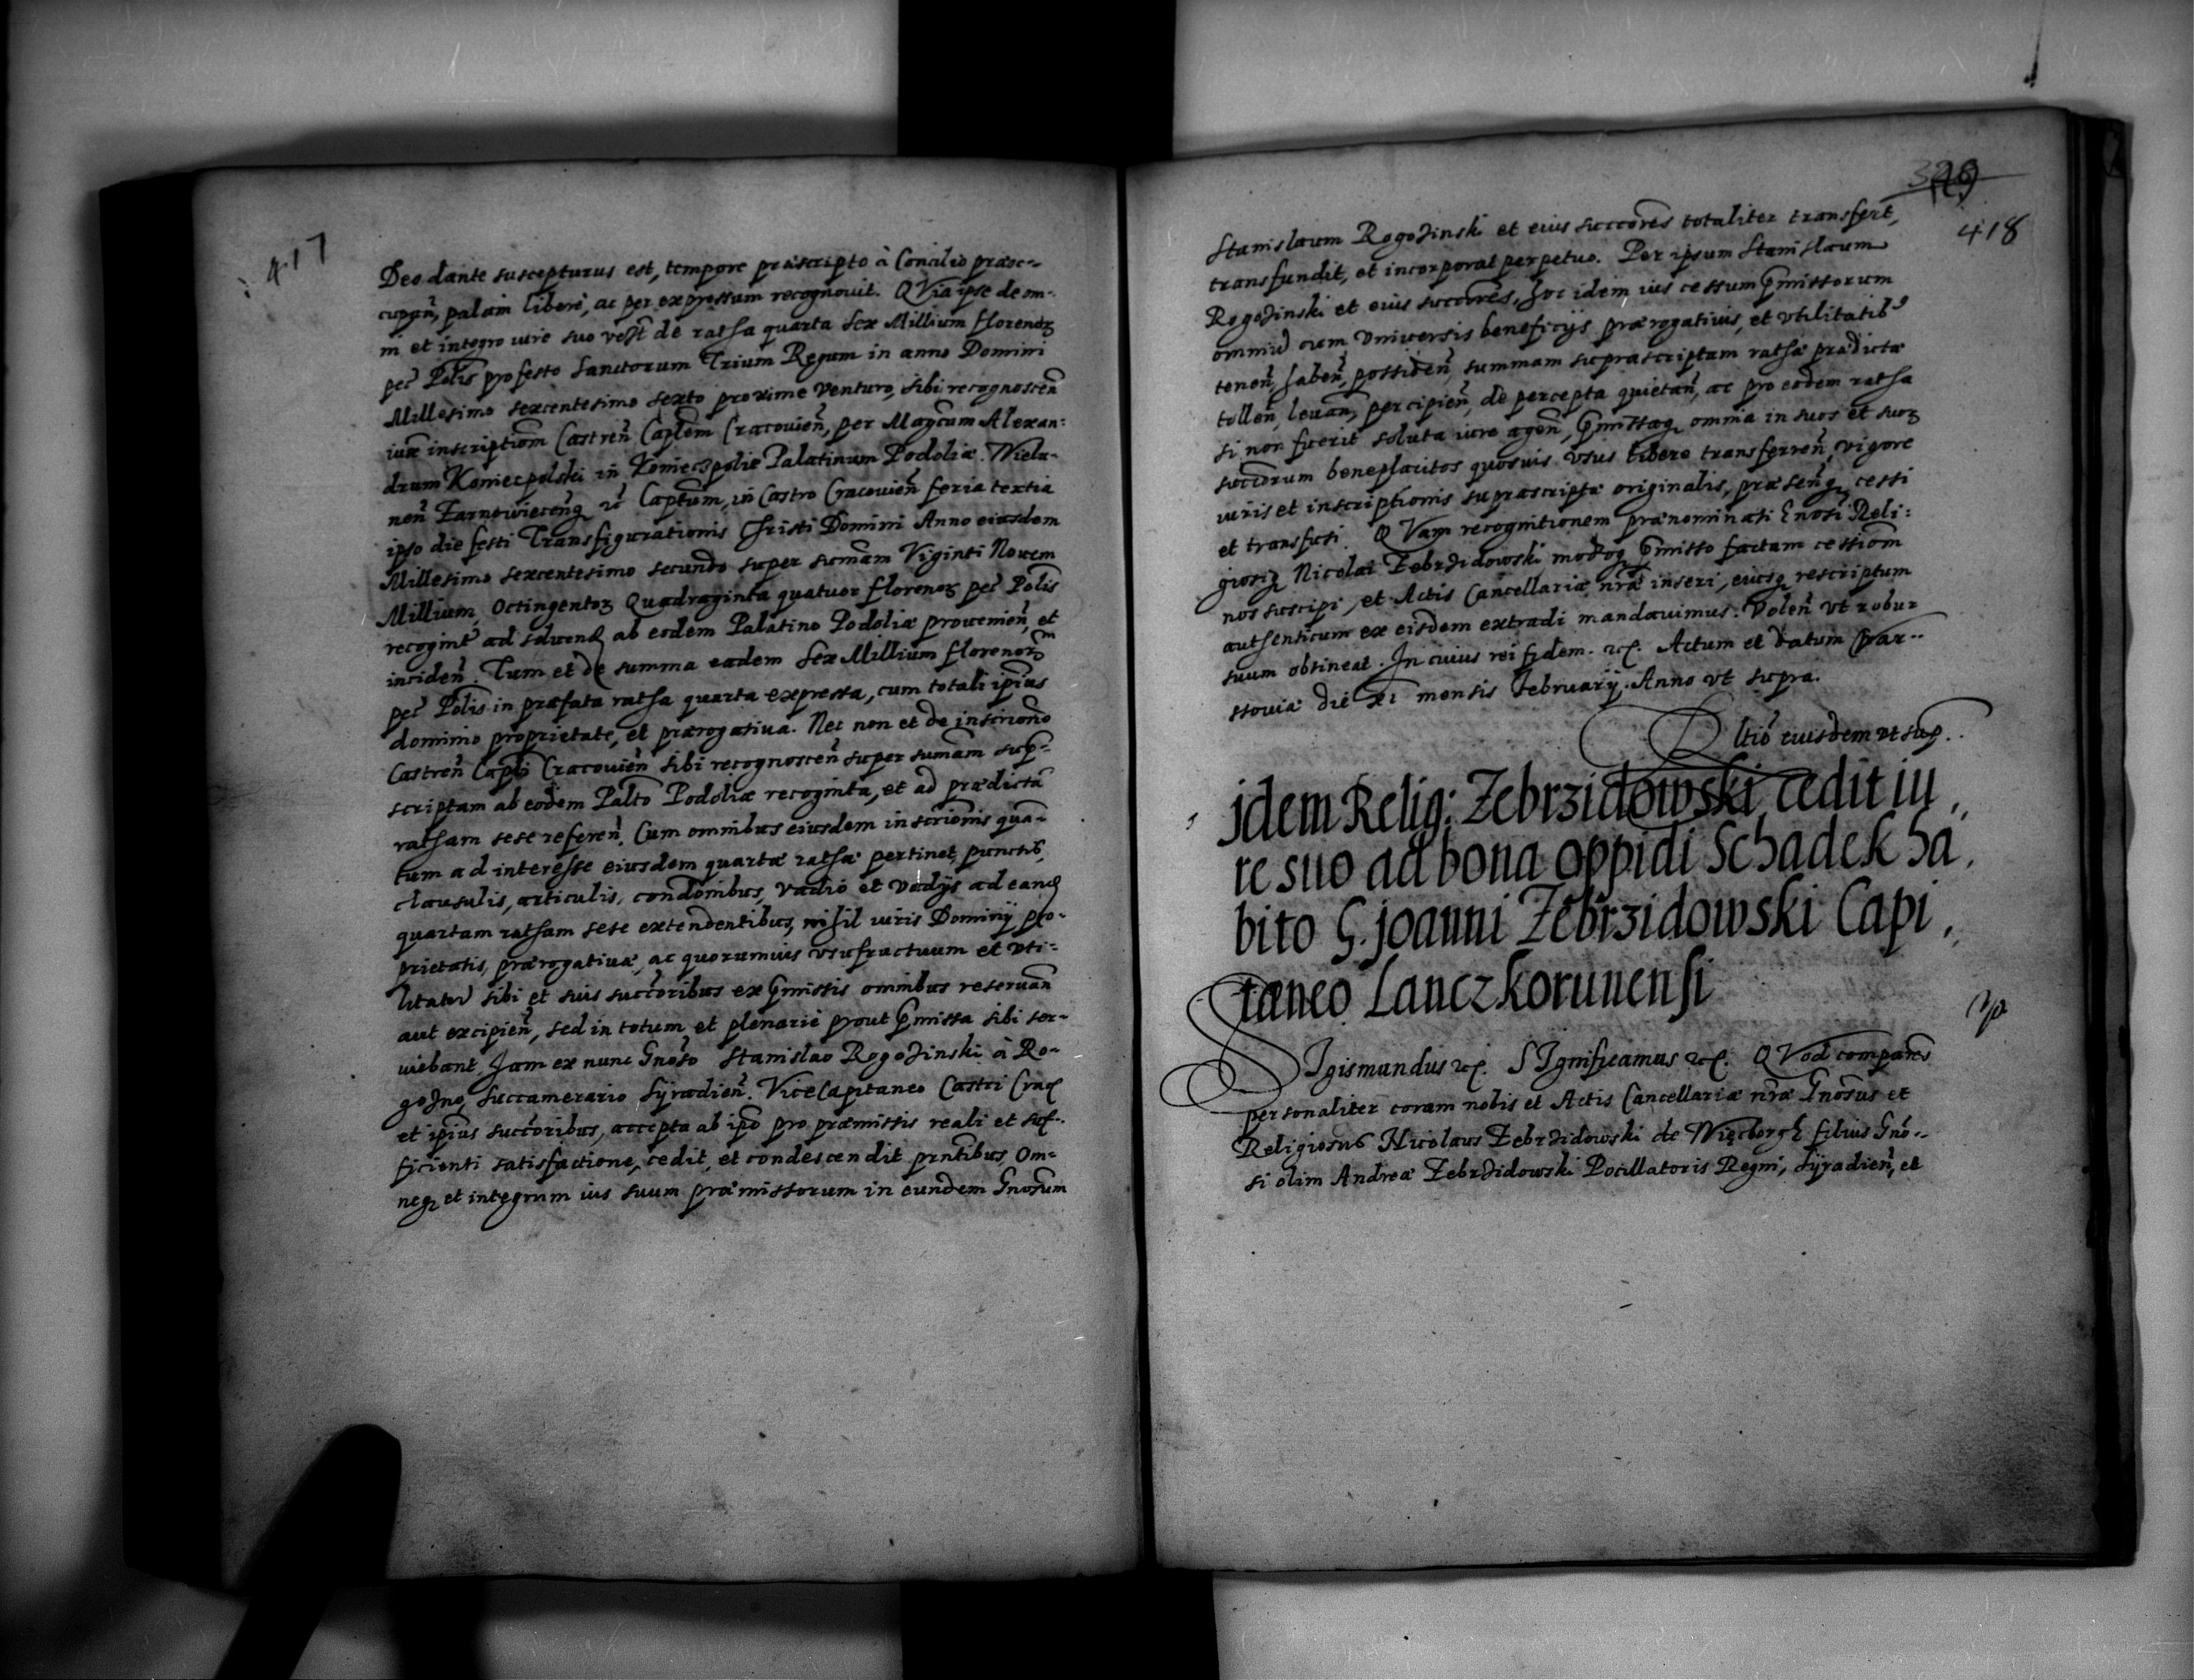 417
Deo dante suscepturus est, tempore præscripto à Concilio præoc-
cupañ, palam liberè, ac per expressum recognovit. QVia ipse de om-
ni et integro iure suo de ratha quarta Sex Millium florenoꝝ
pec̃ Polĩs pro festo Sanctorum Trium Regum in anno Domini
Millesimo sexcentesimo sexto proxime venturo, sibi recognoscen̄
iuxta inscriptiõm Castreñ Captem Cracovieñ, per Magcum Alexan:
drum Koniecpolski in Konieczpolie Palatinum Podoliæ. Wielu-
neñ Zarnowieceñq ec̃ Captum, in Castro Cracovieñ feria tertia
ipso die festi Transfigurationis Christi Domini Anno eiusdem
Millesimo sexcentesimo secundo super sumam Viginti Novem
Millium, Octingentoꝝ Quadraginta quatuor florenoꝝ pec̃ Polĩs
recogint̃ ad solvend ab eodem Palatino Podoliæ provenieñ, et
incideñ. Tum et de summa eadem Sex Millium florenorum
pec̃ Polĩs in præfata ratha quarta expressa, cum totali ipĩus
dominio proprietate, et prærogativa. Nec non et de inscriõne
Castreñ Captli Cracovieñ sibi recognosceñ super sumam sup-
scriptam ab eodem Palto Podoliæ recoginta, et ad prædictã
ratham sese refereñ. Cum omnibus eiusdem inscriõnis quã-
tum ad interesse eiusdem quartæ rathæ pertinet, punctis,
clausulis, articulis, condõnibus, vadio et vadijs ad eand
quartam ratham sese extendentibus, nihil iuris Dominij pro-
prietatis, prærogativæ, ac quorumvis usufructuum et uti-
litatũ sibi et suis succ̃oribus ex p̃missis omnibus reservañ
aut excipieñ, sed in totum et plenariè prout p̃missa sibi ser-
viebant. Jam ex nunc Gnõso Stanislao Rogozinski à Ro-
gozno, Succamerario Syradieñ. ViceCapitaneo Castri Crac
et ipĩus succ̃oribus, accepta ab ipõ pro præmissis reali et suf-
ficienti satisfactione, cedit, et condescendit prñtibus, Om-
neq et integrum ius suum præmissorum in eundem Gnõsum
418
Stanislaum Rogozinski et eius succõres totaliter transfert,
transfundit, et incorporat perpetuo. Per ipsum Stanislaum
Rogozinski et eius succõres, hoc idem ius cessum p̃missorum
omniũ cum Universis beneficijs prærogativis, et utilitatib9
teneñ, habeñ, possideñ, summam suprascriptam rathæ prædictæ
tolleñ, levañ, percipieñ, de percepta quietañ, ac pro eadem ratha
si non fuerit soluta iure ageñ, p̃missaq omnia in suos et suoꝝ
succ̃orum beneplacitos quosvis usus libere transferreñ, vigore
iuris et inscriptionis suprascriptæ originalis, præseñq cessi
et transfusi. QVam recognitionem prænominati Gnosi Reli:
giosiq Nicolai Zebrzidowski modoq p̃misso factam cessiõm
nos suscipi, et Actis Cancellariæ nr̃æ inseri, eiusq rescriptum
authenticum ex eisdem extradi mandavimus. Voleñ ut robur
suum obtineat. In cuius rei fidem. ec. Actum et datum Var-
ssoviæ die XI mensis February. Anno ut supra.
Rltiõ eiusdem ut sup.
jdem Relig: Zebrzidowski cedit iu,,
re suo ad bona oppidi Schadek ha,
bito G. joanni Zebrzidowski Capi,,
taneo Lanczkorunensi
SIgismundus ec. SIgnificamus ec. QVod comparẽs
personaliter coram nobis et Actis Cancellariæ nr̃æ Gnõsus et
Religiosus Nicolaus Zebrzidowski de Więcborgk filius Gnõ-
si olim Andreæ Zebrzidowski Pocillatoris Regni, Syradieñ, et